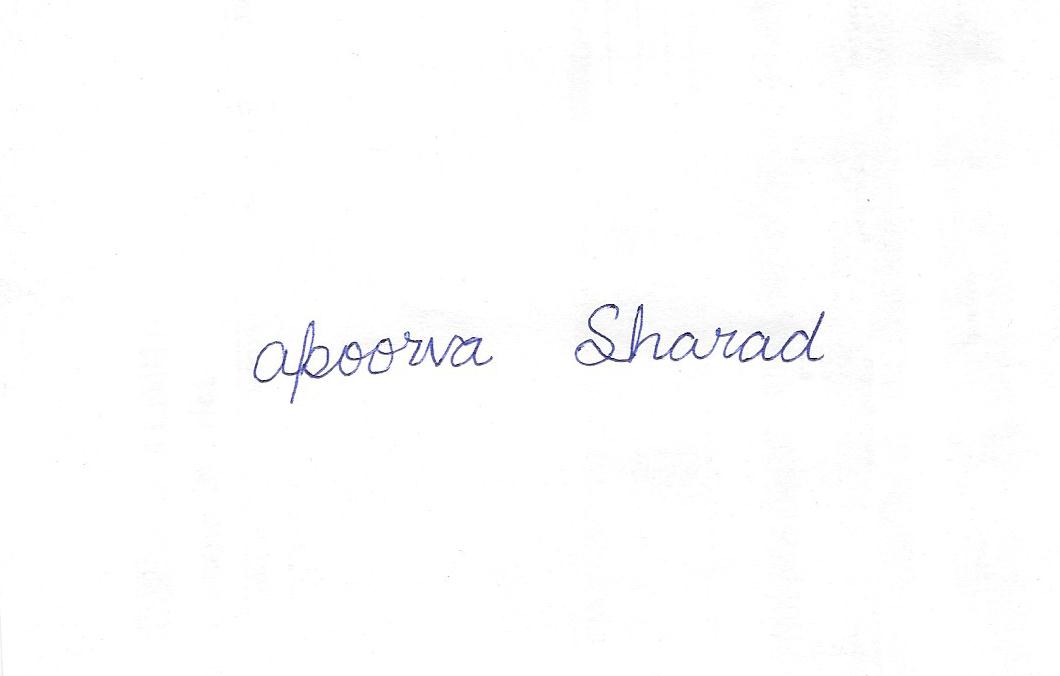 apoorva Sharad